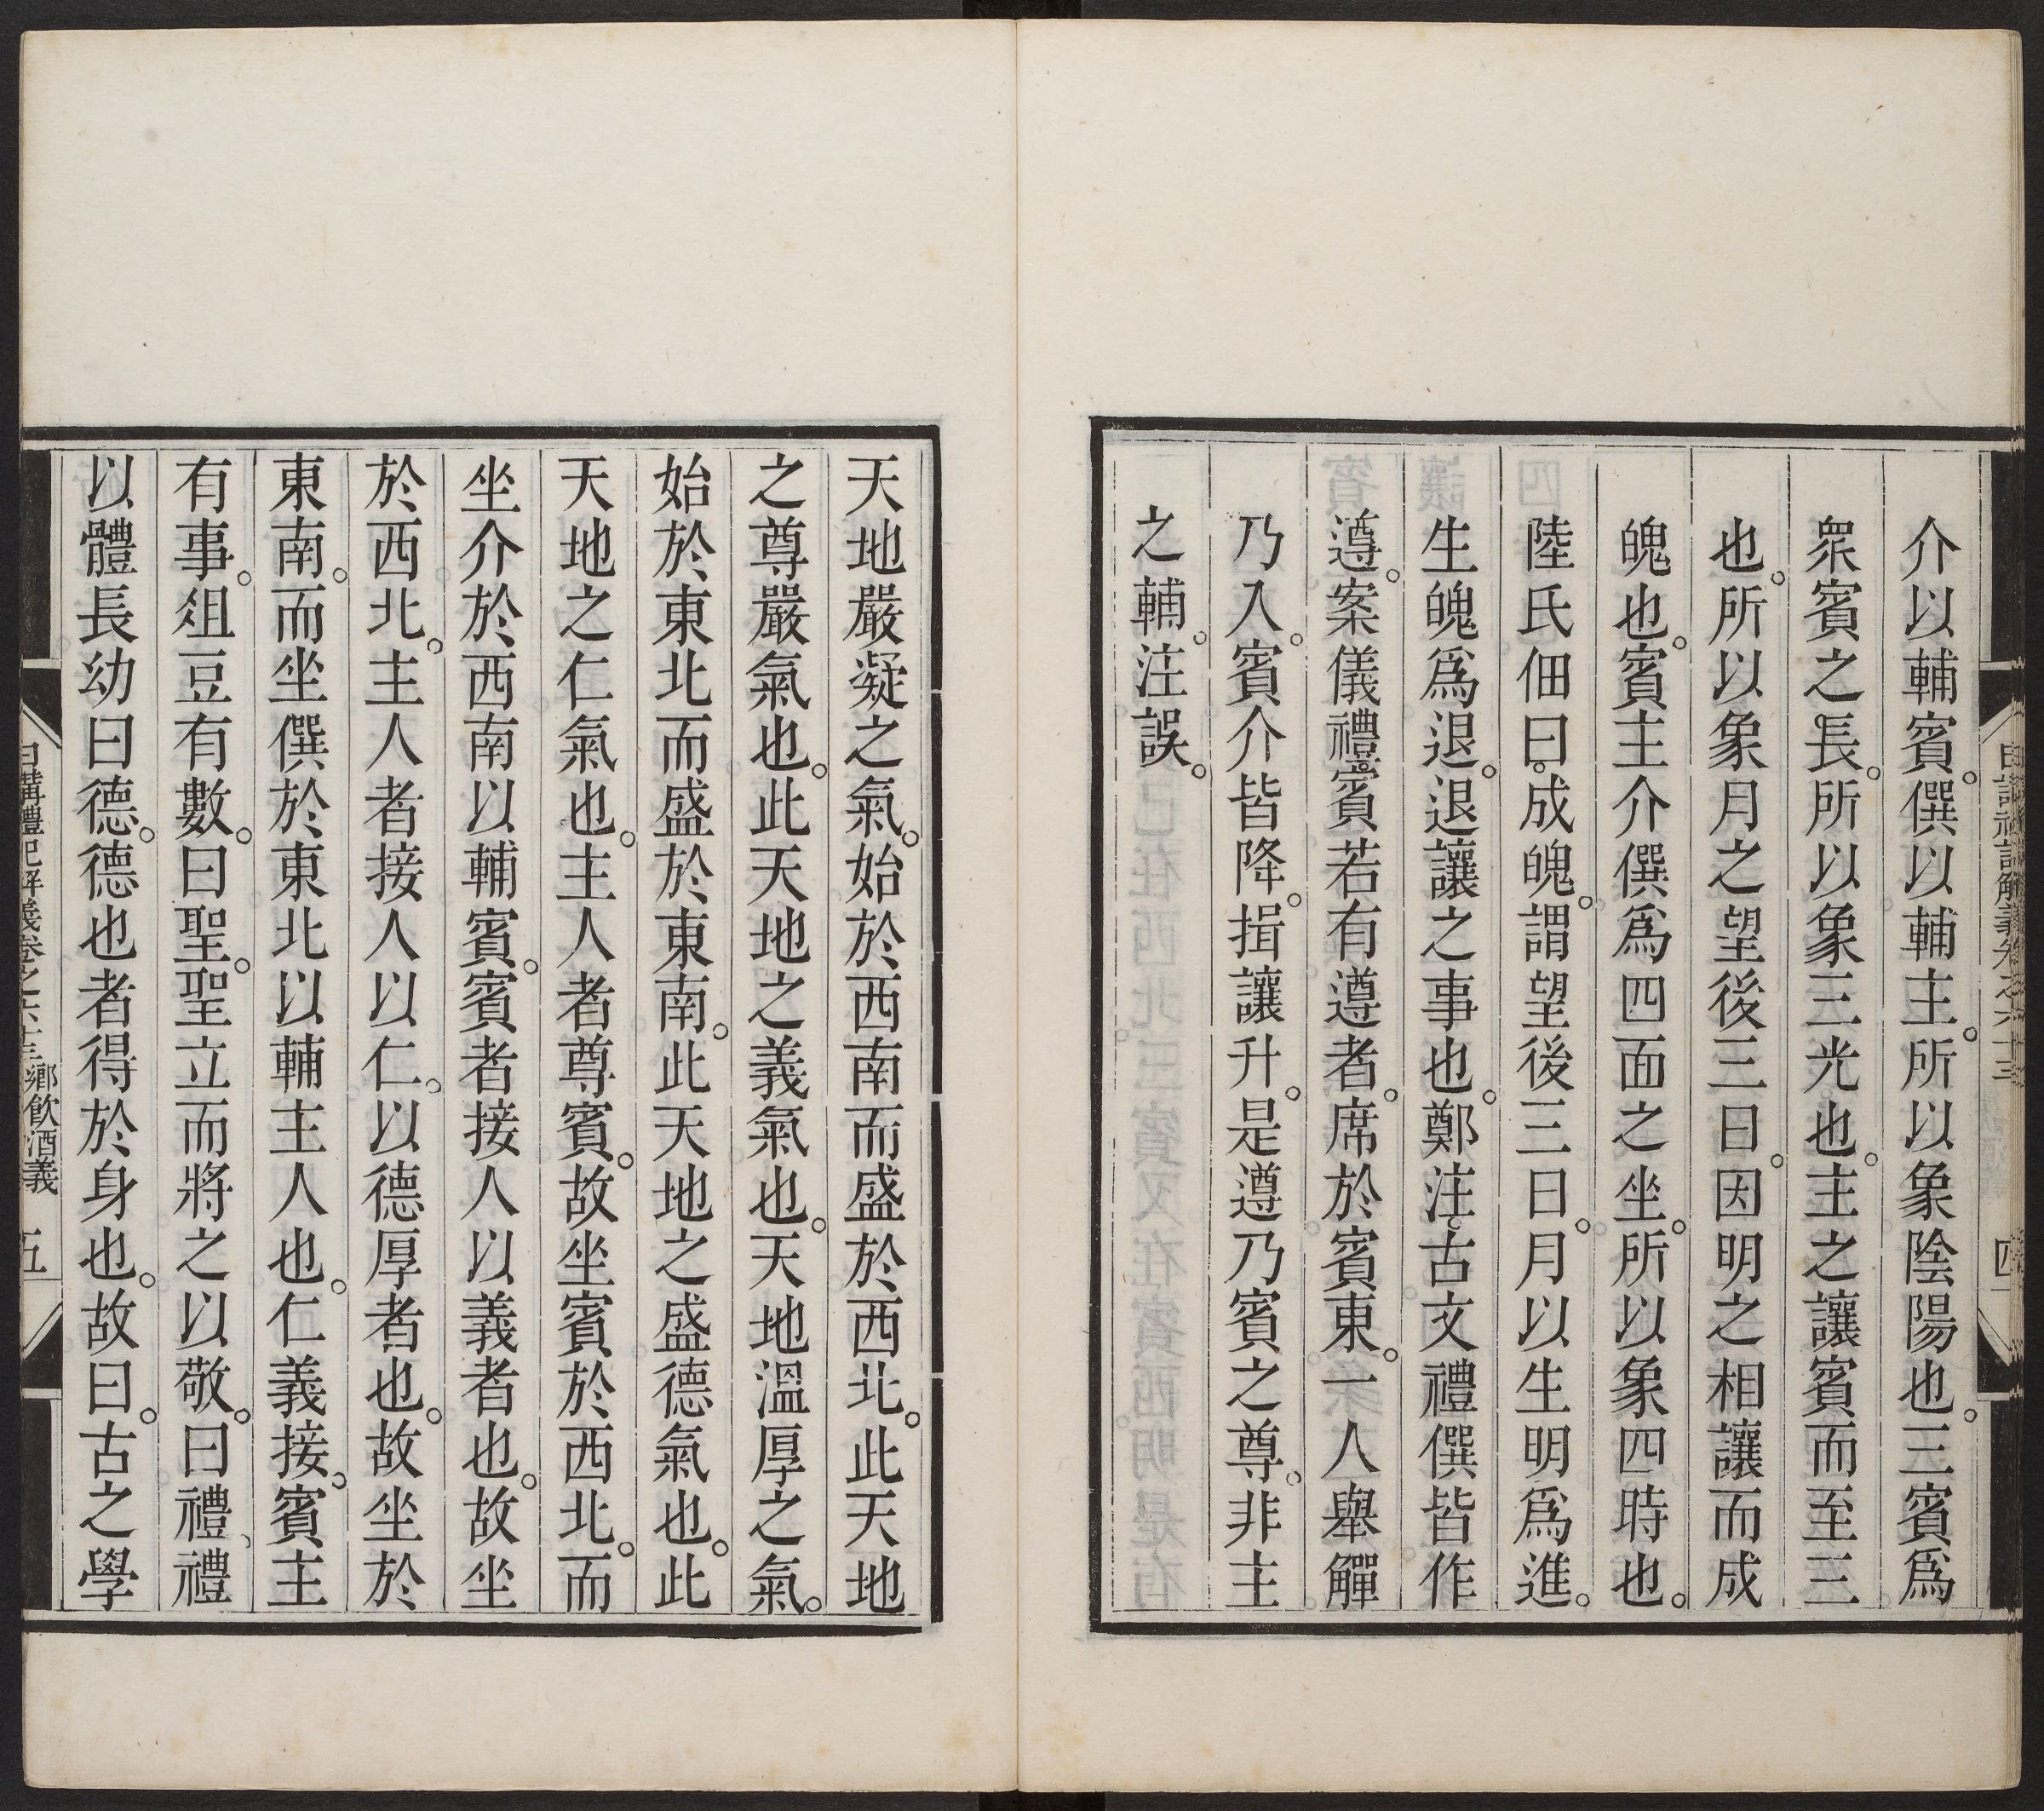 介以輔賓。僎以輔主。所以象陰陽也。三賓爲
衆賓之長。所以象三光也。主之讓賓而至三
也。所以象月之望後三日。因明之相讓而成
魄也。賓主介僎爲四面之坐。所以象四時也。
陸氏佃曰。成魄。謂望後三日。月以生明爲進。
生魄爲退。退讓之事也。鄭注。古文禮僎皆作
遵。案儀禮。賓若有遵者。席於賓東。一人舉觶
乃入。賓介皆降。揖讓升。是遵乃賓之尊。非主
之輔。注誤。
天地嚴凝之氣。始於西南而盛於西北。此天地
之尊嚴氣也。此天地之義氣也。天地溫厚之氣。
始於東北而盛於東南。此天地之盛德氣也。此
天地之仁氣也。主人者尊賓。故坐賓於西北。而
坐介於西南以輔賓。賓者接人以義者也。故坐
於西北。主人者接人以仁。以德厚者也。故坐於
東南。而坐僎於東北以輔主人也。仁義接。賓主
有事。俎豆有數。曰聖。聖立而將之以敬。曰禮、禮
以體長幼曰德。德也者得於身也。故曰。古之學
日講禮記解義卷之六十三 鄉飲酒義 五